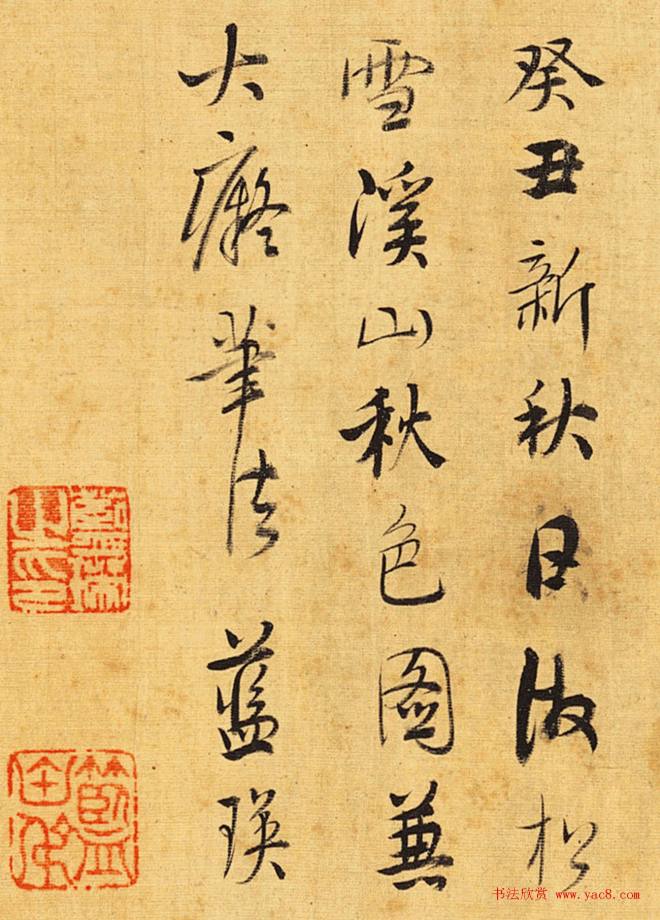 癸丑新秋日仿松
雪溪山秋色圖兼
大癡筆法 藍瑛
書法欣赏 www.yac8.com